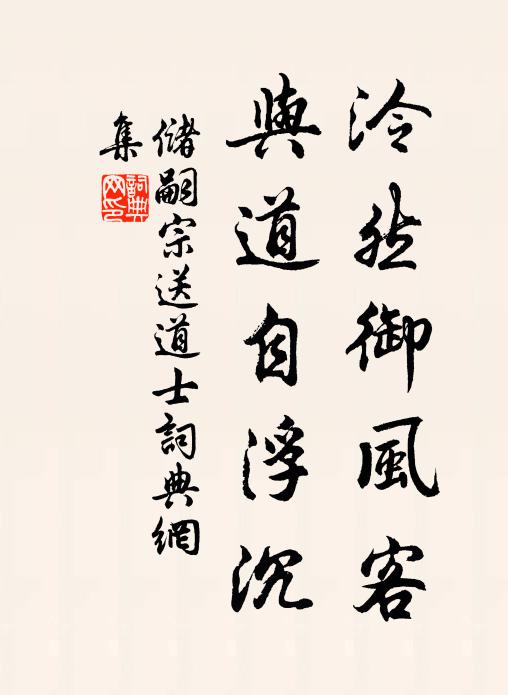 泠然御風客
與道自浮沉
儲嗣宗送道士詞典網
集
詞典
网印